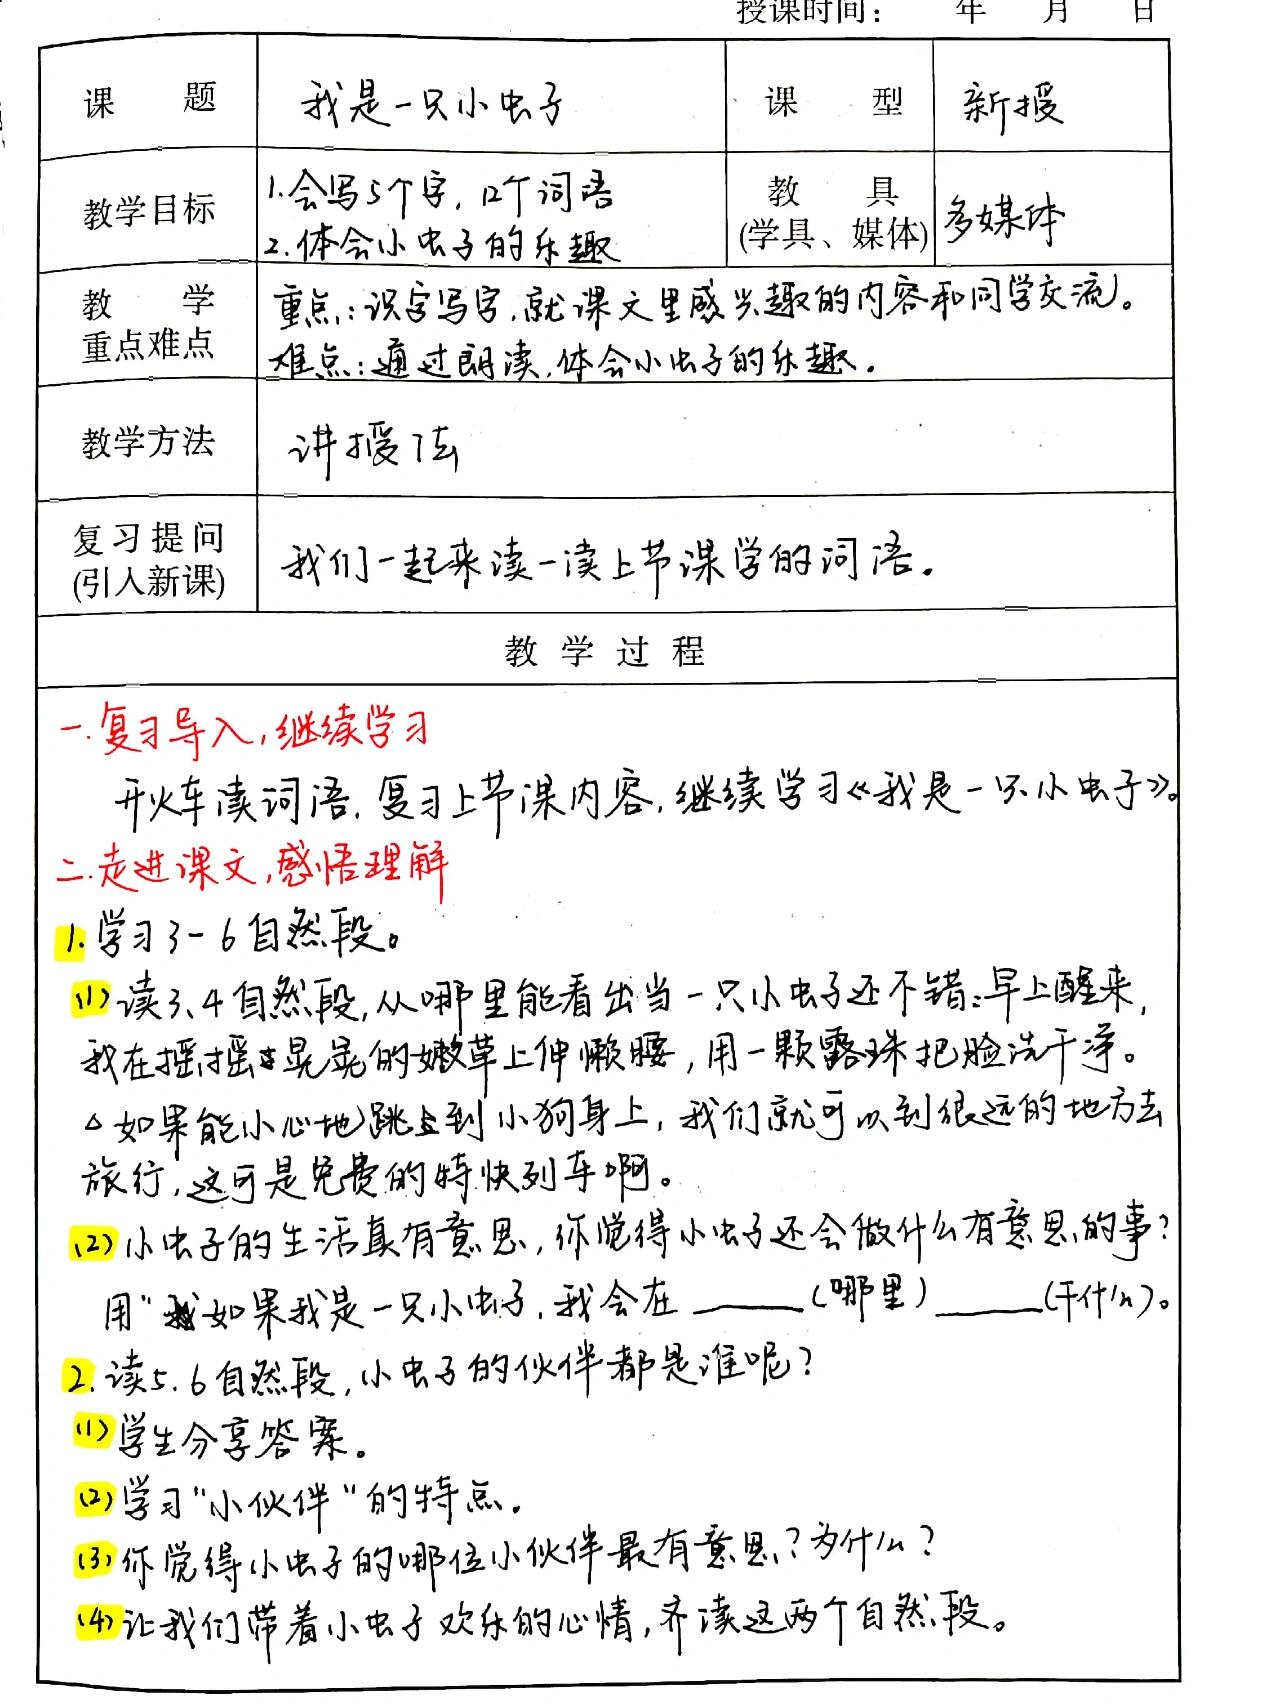 授课时间： 年 月 日
课 题 我是一只小虫子 课 型 新授
教学目标 1.会写5个字，12个词语
2.体会小虫子的乐趣
教 具
(学具、媒体) 多媒体
教 学
重点难点 重点：识字写字，就课文里感兴趣的内容和同学交流。
难点：通过朗读，体会小虫子的乐趣。
教学方法 讲授法
复习提问
(引入新课) 我们一起来读一读上节课学的词语。
教 学 过 程
一.复习导入，继续学习
开火车读词语，复习上节课内容，继续学习《我是一只小虫子》。
二.走进课文，感悟理解
1.学习3-6自然段。
(1)读3、4自然段，从哪里能看出当一只小虫子还不错：早上醒来，
我在摇摇晃晃的嫩草上伸懒腰，用一颗露珠把脸洗干净。
△如果能小心地跳到小狗身上，我们就可以到很远的地方去
旅行，这可是免费的特快列车啊。
(2)小虫子的生活真有意思，你觉得小虫子还会做什么有意思的事？
用“如果我是一只小虫子，我会在______(哪里)______(干什么)。
2.读5.6自然段，小虫子的伙伴都是谁呢？
(1)学生分享答案。
(2)学习“小伙伴”的特点.
(3)你觉得小虫子的哪位小伙伴最有意思？为什么？
(4)让我们带着小虫子欢乐的心情，齐读这两个自然段。